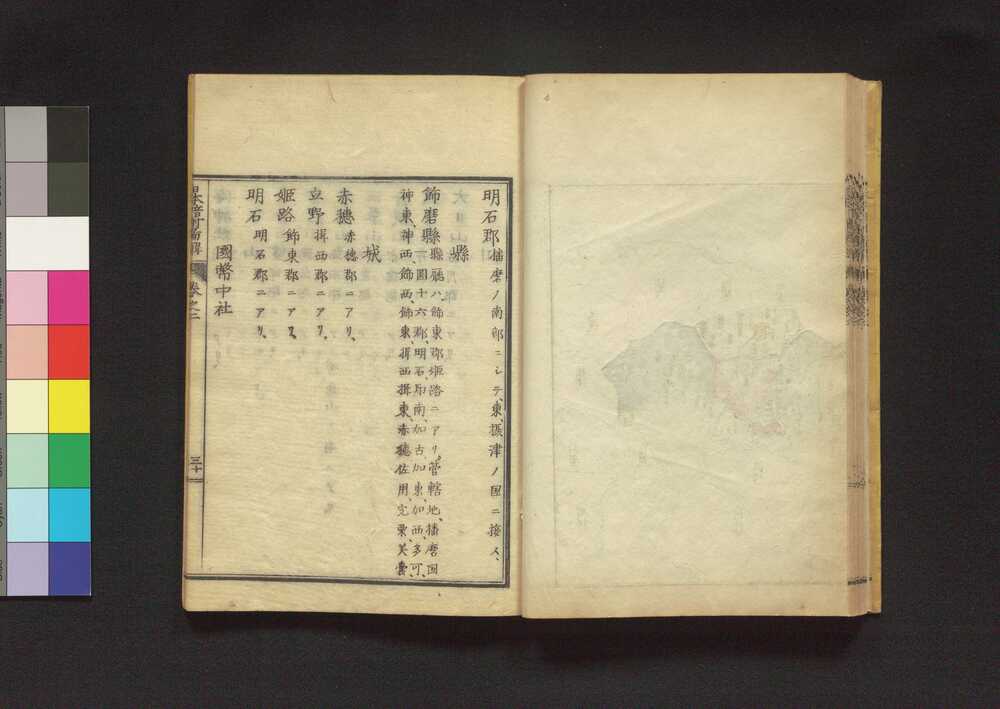 明石郡 播磨ノ南部ニシテ、東、摂津ノ国ニ接ス、
縣
飾磨縣 縣廳ハ飾東郡姫路ニアリ、管轄地、播磨国
一圓十六郡、明石、印南、加古、加東、加西、多可、
神東、神西、飾西、飾東、揖西、揖東、赤穂、佐用、宍粟、美嚢、
城
赤穂 赤穂郡ニアリ、
立野 揖西郡ニアリ、
姫路 飾東郡ニアリ、
明石 明石郡ニアリ、
國幣中社
卷之二
三十